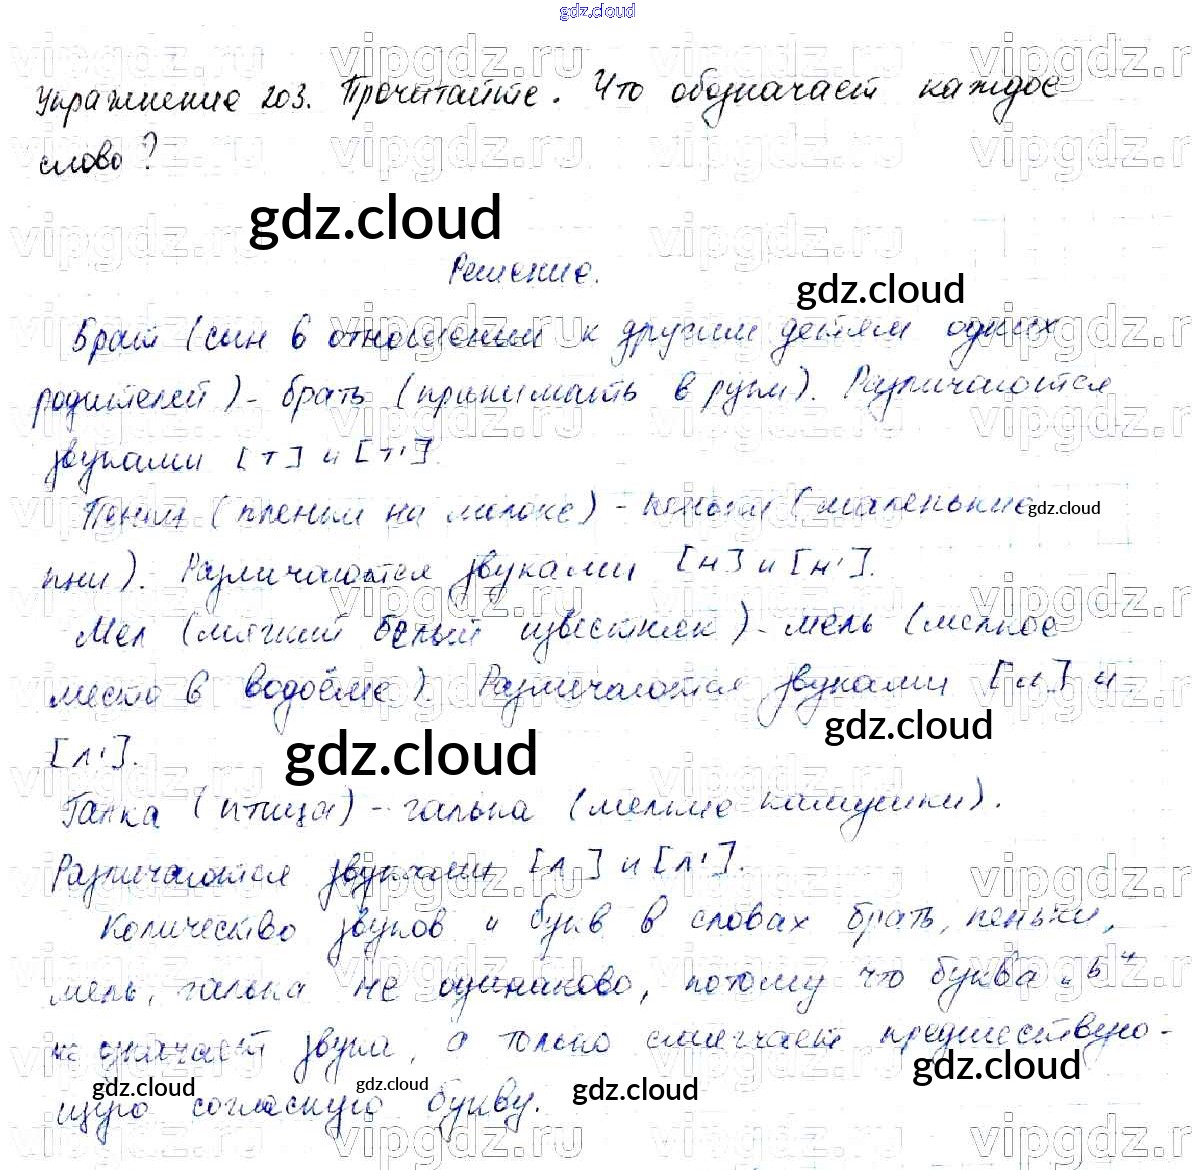 gdz.cloud
Упражнение 203. Прочитайте. Что обозначает каждое
слово?
gdz.cloud
Решение.
gdz.cloud
Брат (сын в отношении к другим детям одних
родителей) - брать (принимать в руки). Различаются
звуками [т] и [т'].
Пенки (пленки на молоке) - пеньки (маленькие
gdz.cloud
пни). Различаются звуками [н] и [н'].
Мел (мягкий белый известняк) - мель (мелкое
место в водоёме). Различаются звуками [л] и
gdz.cloud
[л'].
gdz.cloud
Галка (птица) - галька (мелкие камушки).
Различаются звуками [л] и [л'].
Количество звуков и букв в словах брать, пеньки,
мель, галька не одинаково, потому что буква "ь"
не означает звука, а только смягчает предшествую-
gdz.cloud
gdz.cloud
gdz.cloud
gdz.cloud
щую согласную букву.